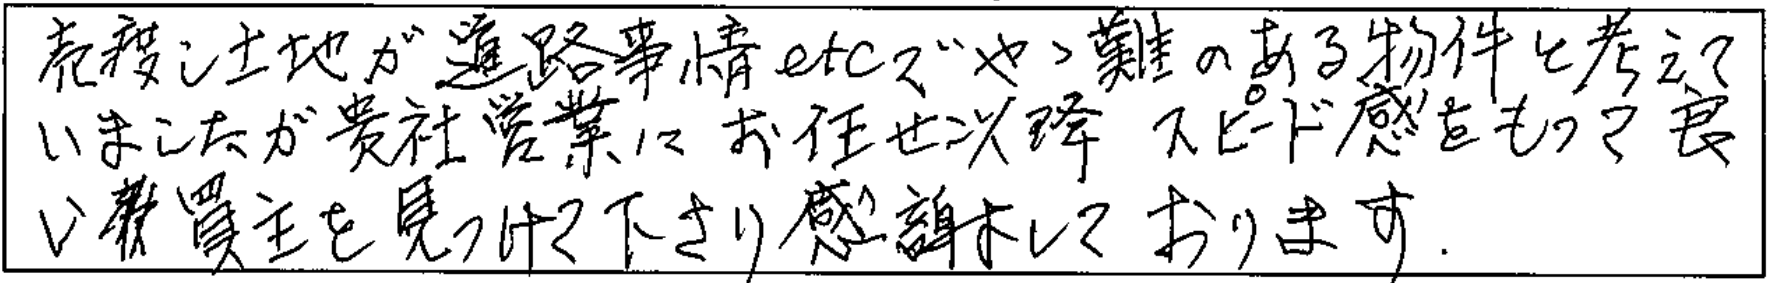 売渡し土地が進路事情etcでやゝ難のある物件と考えて
いましたが貴社営業にお任せ以降 スピード感をもって良
い買主を見つけて下さり感謝しております.